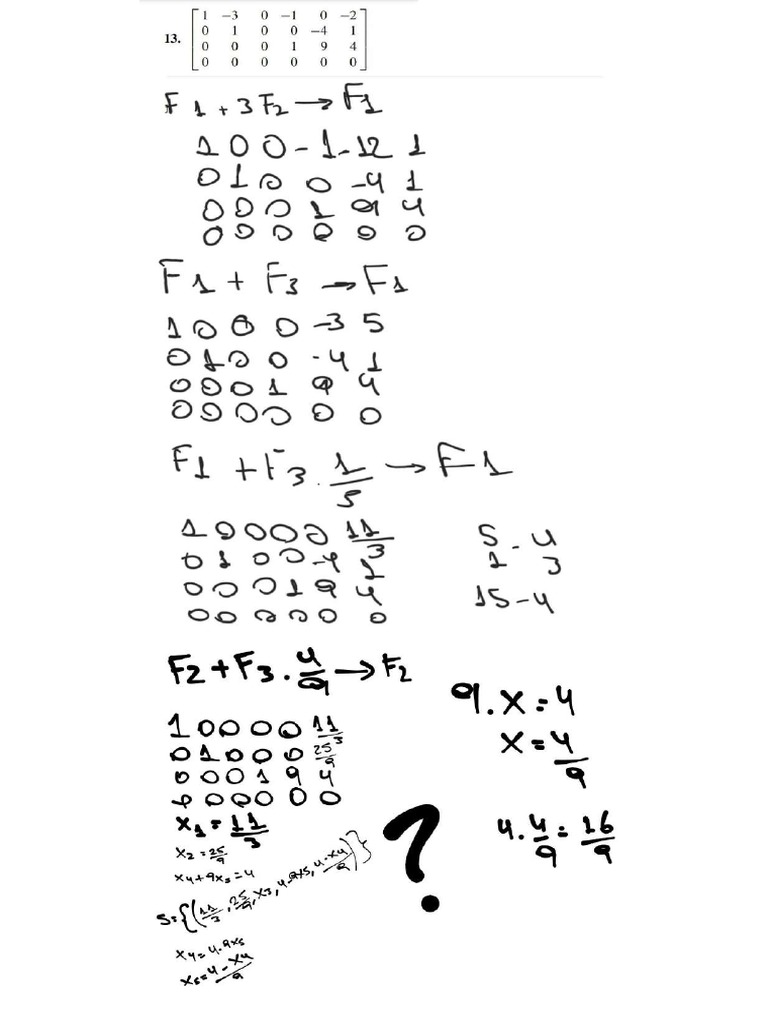 13. [ 1 −3 0 −1 0 −2
0 1 0 0 −4 1
0 0 0 1 9 4
0 0 0 0 0 0 ]
F1 + 3F2 → F1
1 0 0 -1 -12 1
0 1 0 0 -4 1
0 0 0 1 9 4
0 0 0 0 0 0
F1 + F3 → F1
1 0 0 0 -3 5
0 1 0 0 -4 1
0 0 0 1 9 4
0 0 0 0 0 0
F1 + F3 . 1/3 → F1
1 0 0 0 0 11/3
0 1 0 0 -4 1
0 0 0 1 9 4
0 0 0 0 0 0
5/1 - 4/3
15-4
F2 + F3 . 4/9 → F2
1 0 0 0 0 11/3
0 1 0 0 0 25/9
0 0 0 1 9 4
0 0 0 0 0 0
9.x=4
x=4/9
4.4/9=16/9
x1=11/3
x2=25/9
x4+9x5=4
S={(11/3, 25/9, x3, 4-9x5, 4-x4/9)}
x4=4-9x5
x5=4-x4/9
?